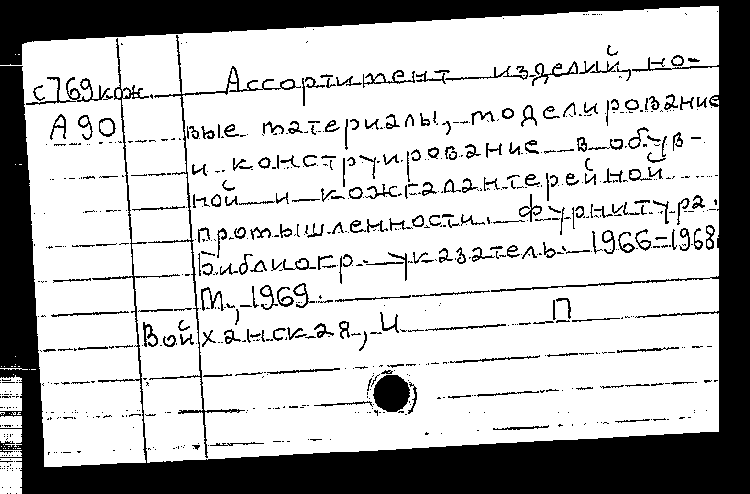 с769кож. Ассортимент изделий, но-
А90 вые материалы, моделирование
и конструирование в обув-
ной и кожгалантерейной
промышленности. Фурнитура.
Библиогр. указатель. 1966-1968.
М., 1969.
Войханская, И П